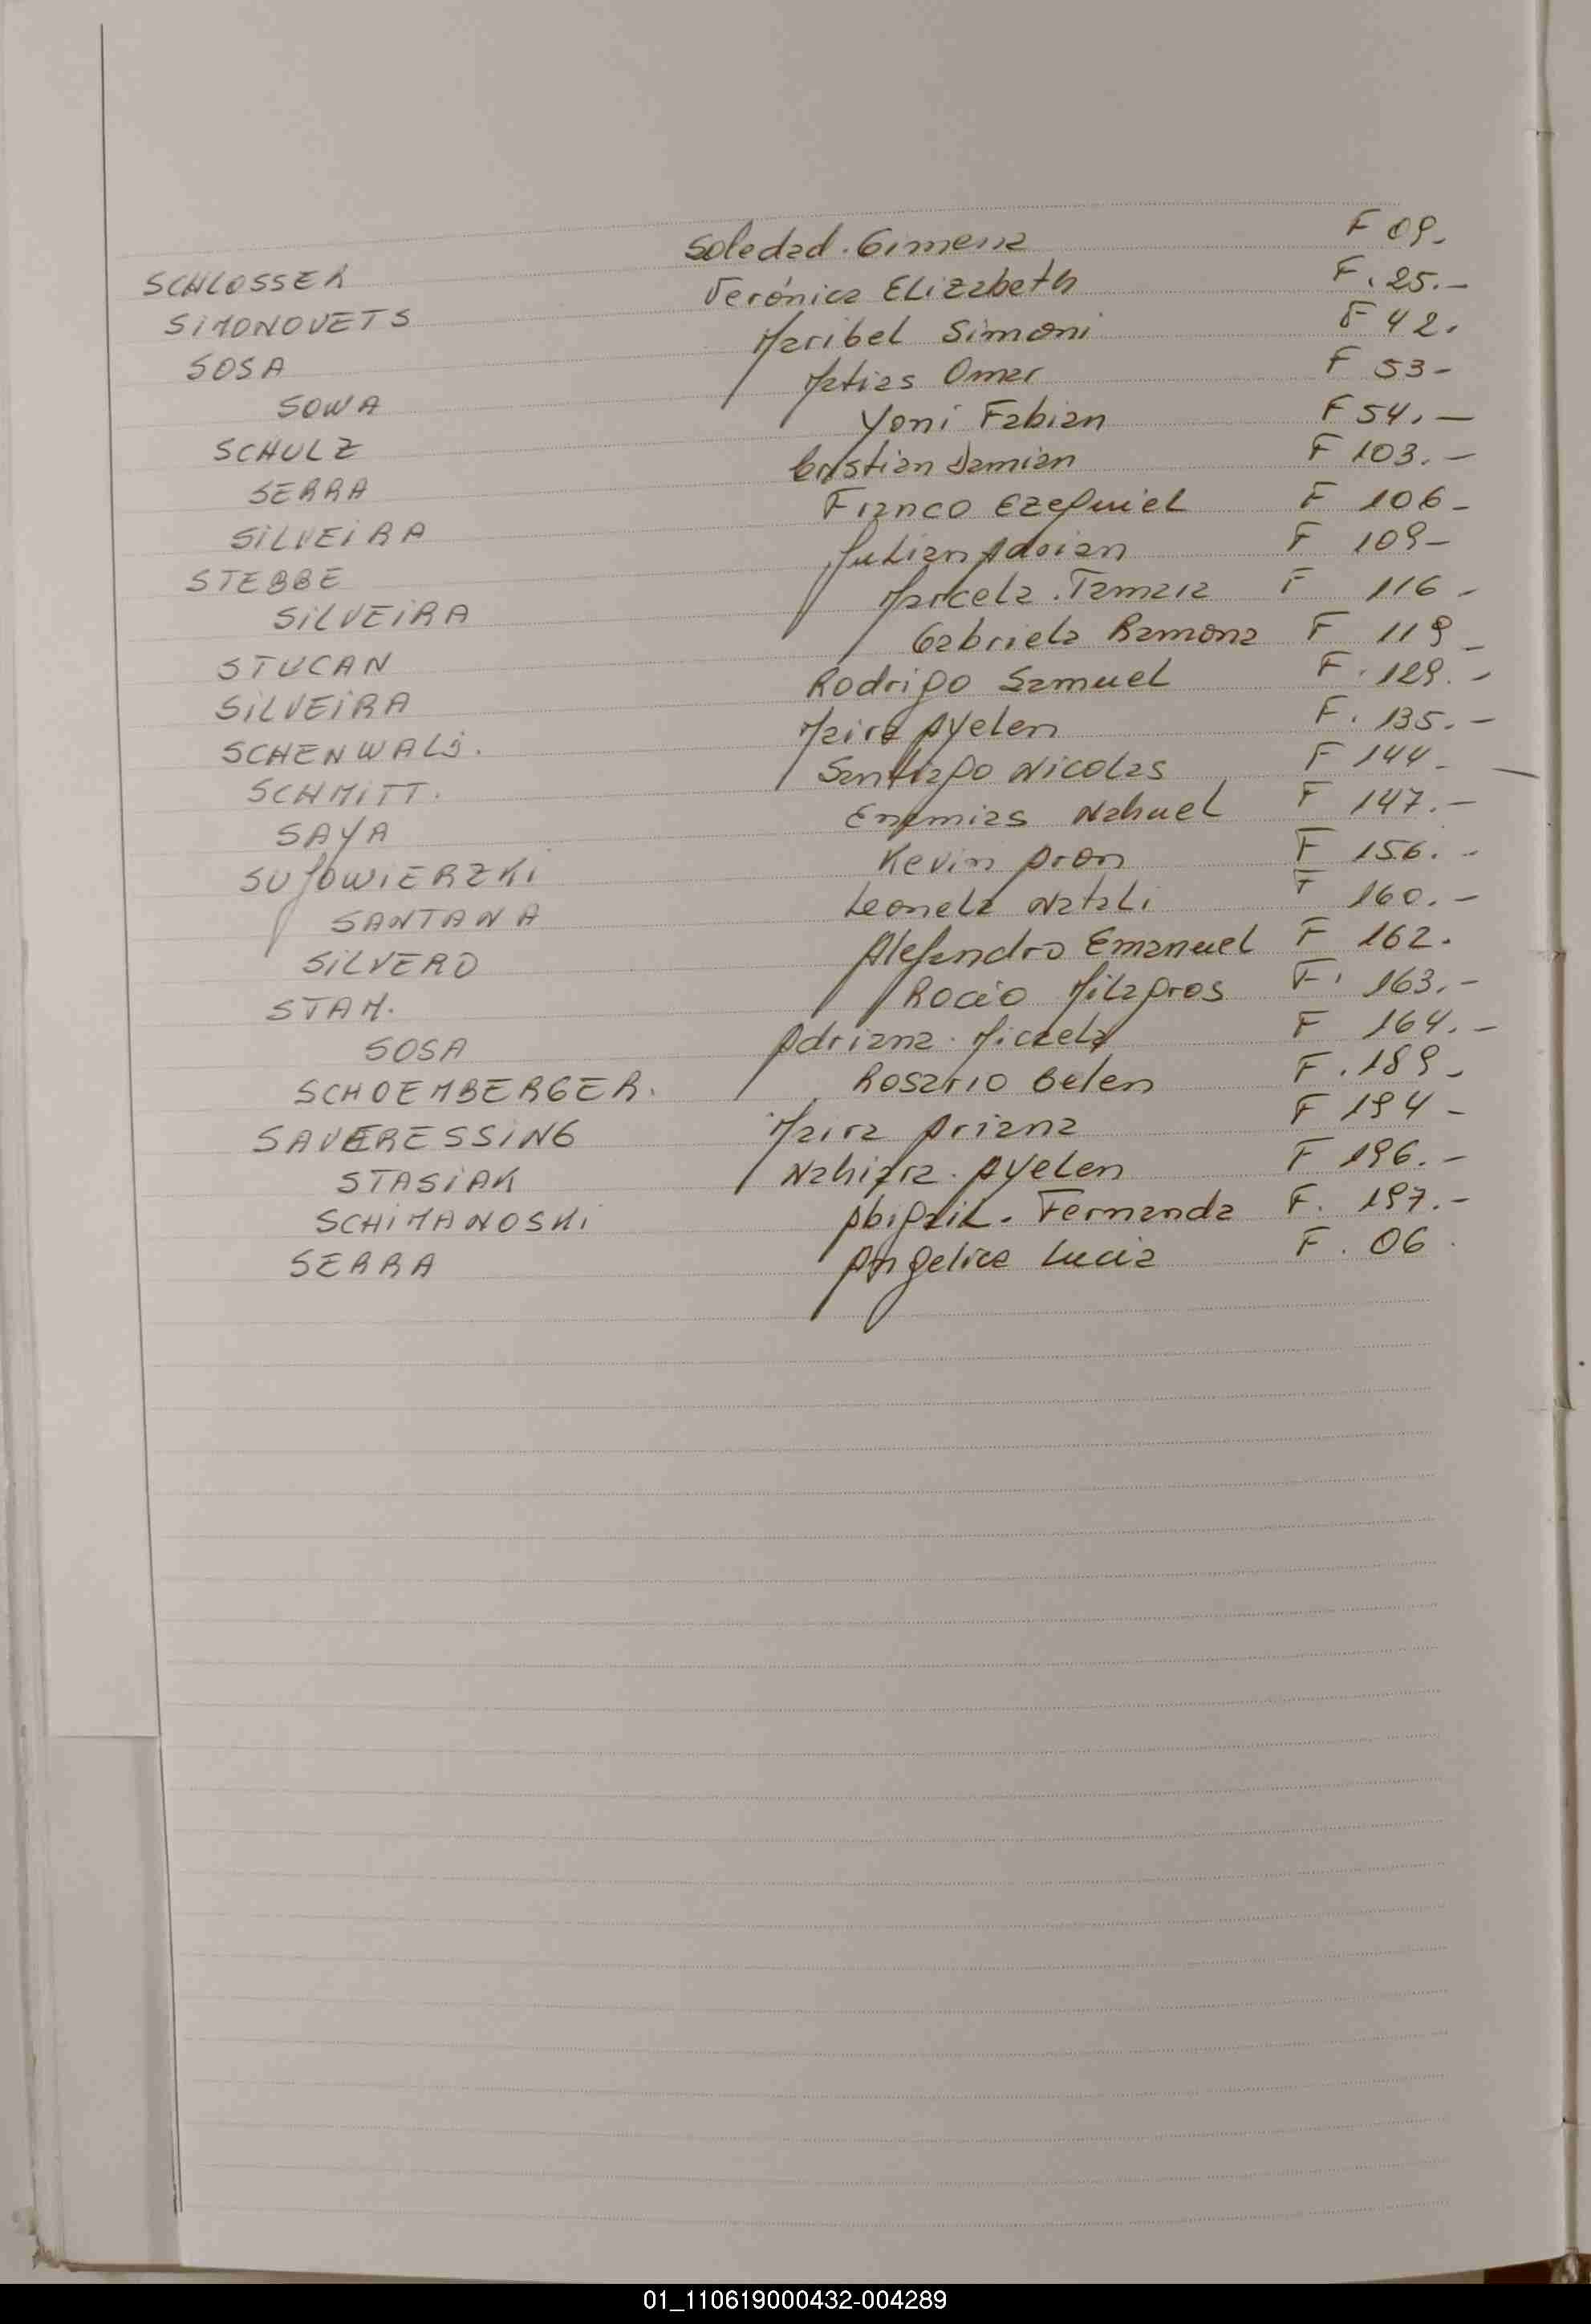 SCHLOSSER Soledad. Gimena F 09.
SiMONOVETS Verónica ELizabeth F. 25.-
SOSA Maribel Simoni F 42.
SOWA Matias Omar F 53-
SCHULZ Yoni Fabian F 54.-
SERRA Cristian Damian F 103.-
SiLVEiRA Franco Ezequiel F 106-
STEBBE Julian Adrian F 109-
SiLVEiRA Marcela. Tamara F 116-
STUCAN Gabriela Ramona F 119-
SiLVEiRA Rodrigo Samuel F. 129.-
SCHENWALD. Maira Ayelen F. 135.-
SCHMiTT. Santiago Nicolas F 144-
SAYA Enemias Nahuel F 147.-
SUJOWiERZKi Kevin Aron F 156.-
SANTANA Leonela Natali F 160.-
SiLVERO Alejandro Emanuel F 162.
STAM. Rocio Milagros F. 163.-
SOSA Adriana. Micaela F 164.-
SCHOEMBERGER. Rosario Belen F. 189-
SAVERESSiNG Maira Ariana F 194-
STASiAK Nahiara. Ayelen F 196.-
SCHiMANOSKi Abigail. Fernanda F. 197.-
SERRA Angelica Lucia F. 06.
01_110619000432-004289